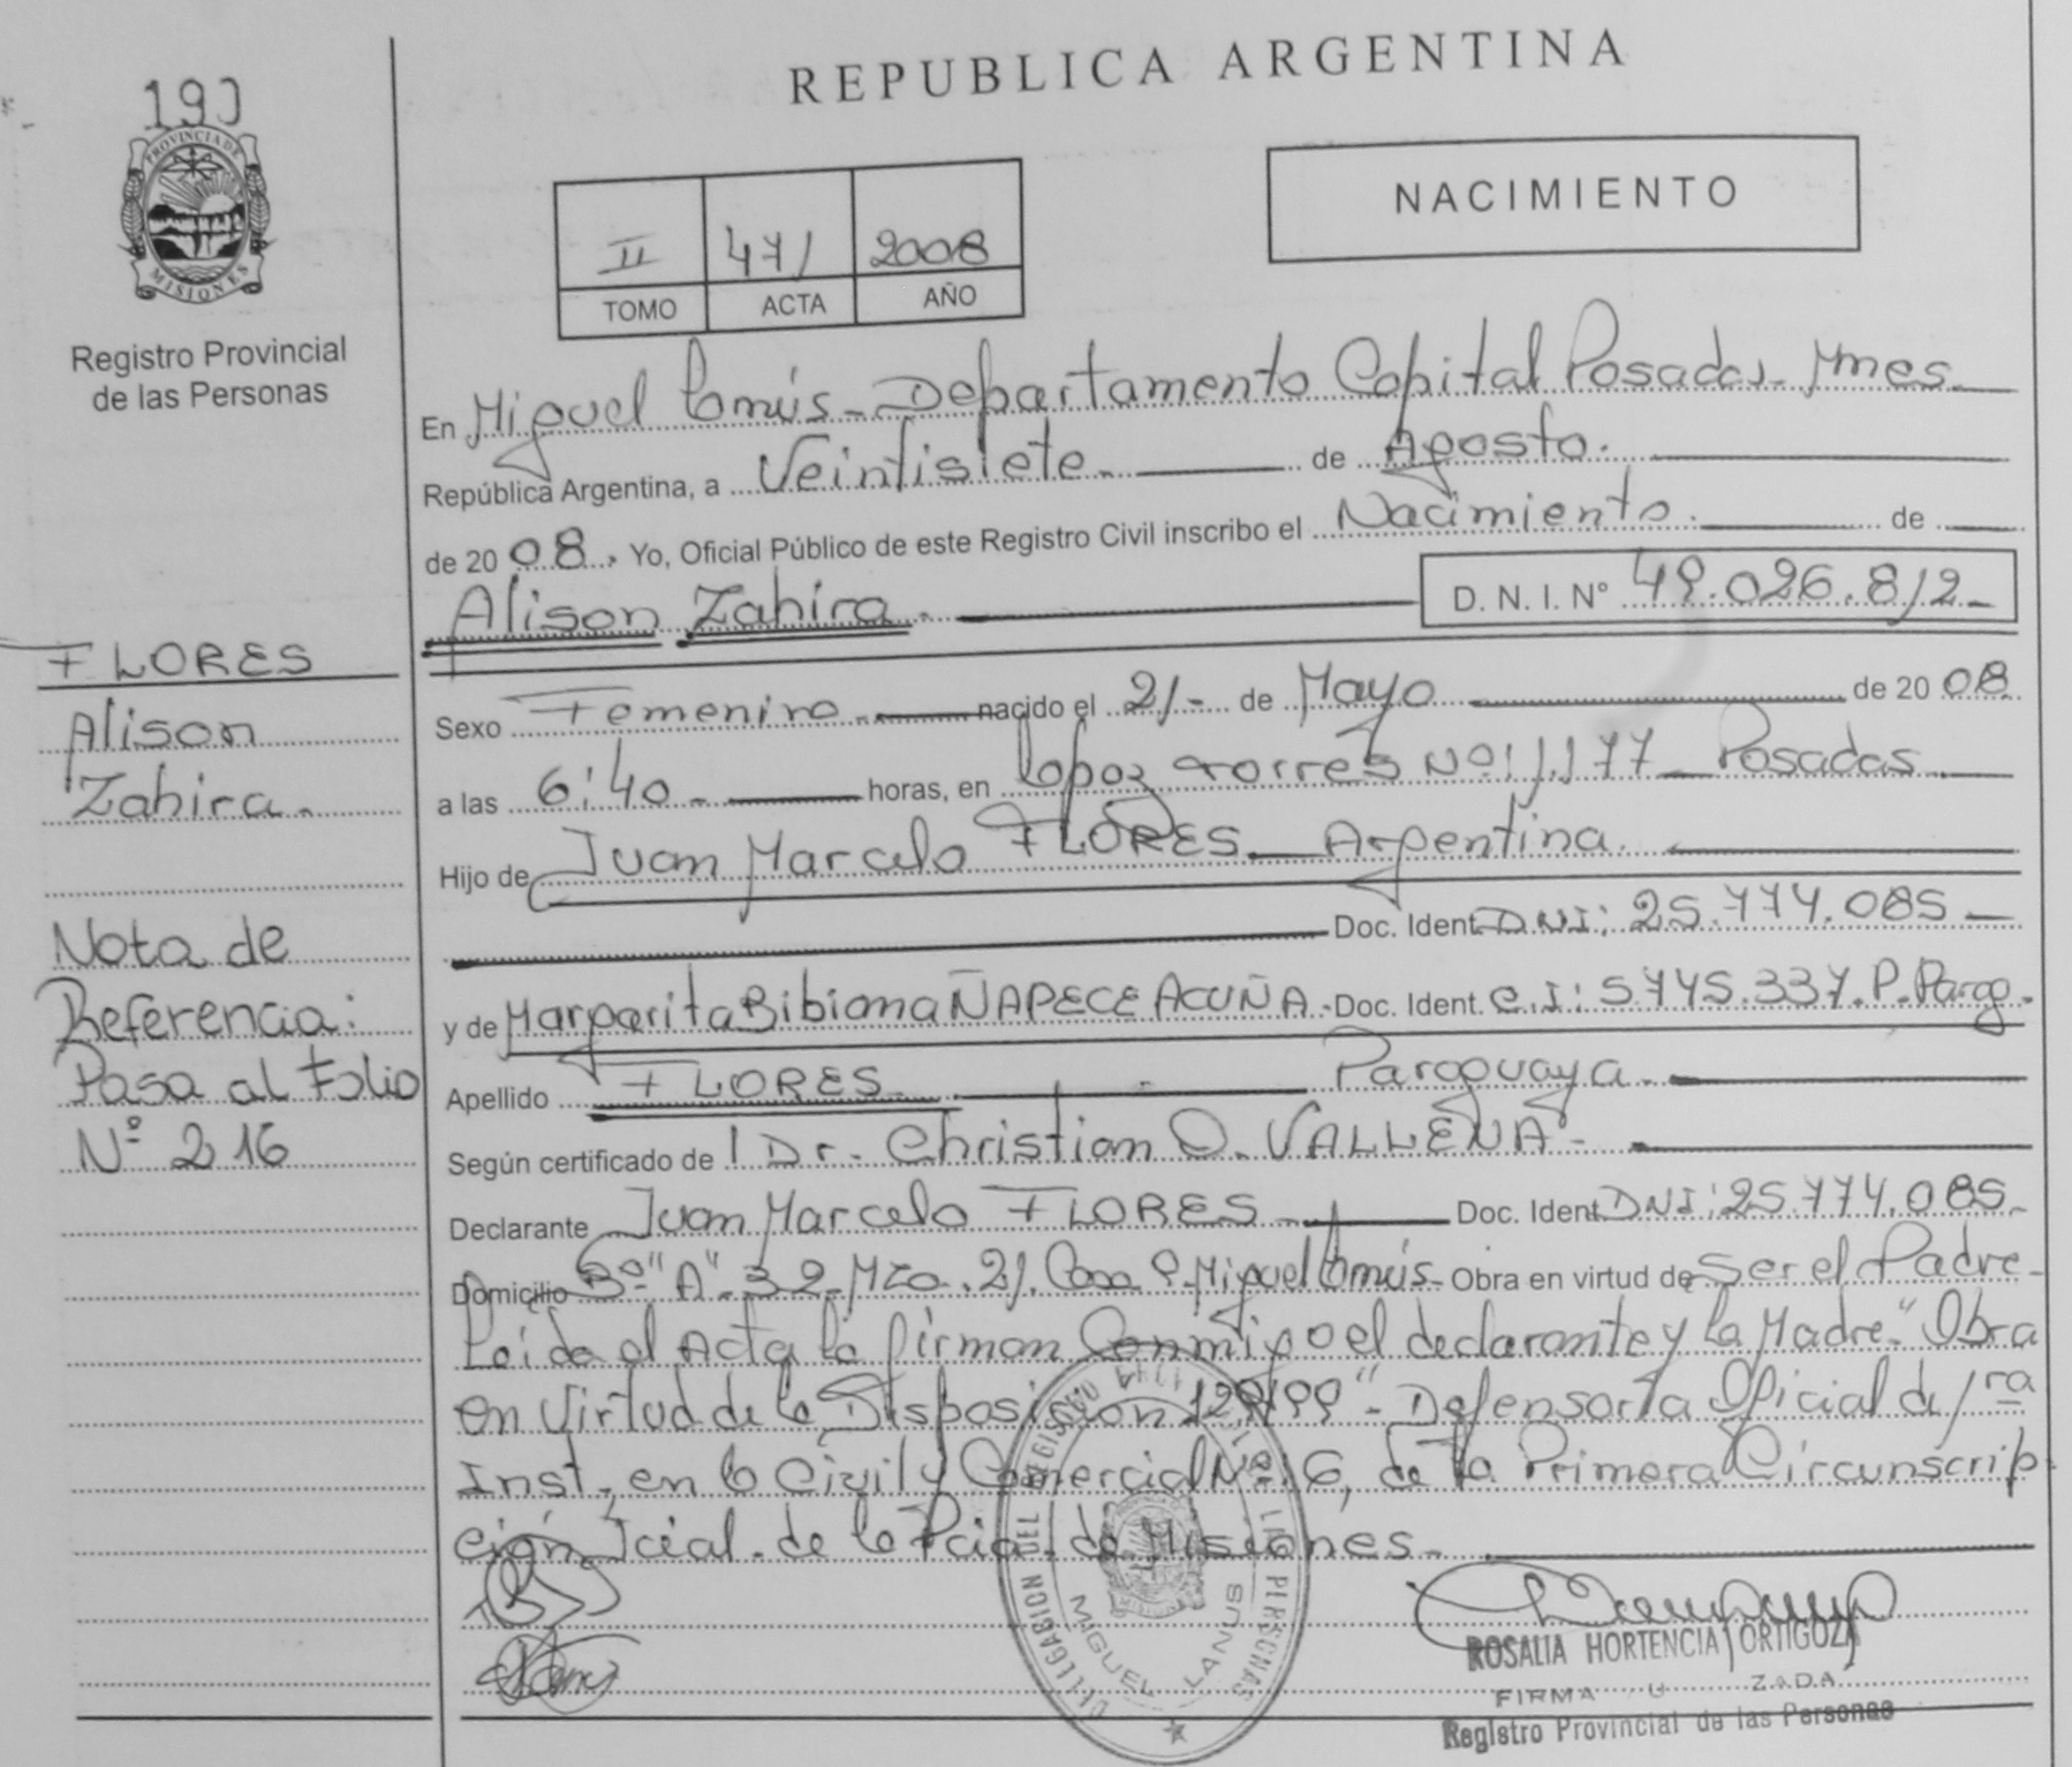 190
PROVINCIA DE
MISIONES
Registro Provincial
de las Personas
REPUBLICA ARGENTINA
NACIMIENTO
II 471 2008
TOMO ACTA AÑO
En Miguel Lanús - Departamento Capital Posadas - Mnes.
República Argentina, a Veintisiete. de Agosto.
de 20 08. Yo, Oficial Público de este Registro Civil inscribo el Nacimiento. de
Alison Zahira.
D. N. I. N° 49.026.812-
Sexo Femenino nacido el 21- de Mayo de 20 08
a las 6:40 - horas, en Lopez torres Nº: 1.177 - Posadas.
Hijo de Juan Marcelo FLORES. Argentina.
Doc. Ident. DNI: 25.774.085
y de Margarita Bibiana ÑAPECE ACUÑA - Doc. Ident. C.I: 5745.337. P. Parag.
Apellido FLORES. Paraguaya.
Según certificado de Dr. Christian O. VALLENA -
Declarante Juan Marcelo FLORES - Doc. Ident. DNI: 25.774.085.
Domicilio Bº "A" - 32 - Mza. 21. Casa 9. Miguel Lanús - Obra en virtud de Ser el Padre -
Leida el Acta la firman Conmigo el declarante y la Madre - "Obra
en Virtud de la Disposicion 129/99" - Defensoria Oficial de 1ra
Inst, en lo Civil y Comercial Nº: 6, de la Primera Circunscrip
ción Jcial. de la Pcia. de Misiones -
FLORES
Alison
Zahira.
Nota de
Referencia:
Pasa al Folio
Nº 216
DELEGACION DEL REGISTRO PROVINCIAL DE LAS PERSONAS
MIGUEL LANUS
ROSALIA HORTENCIA ORTIGOZA
FIRMA
Registro Provincial de las Personas